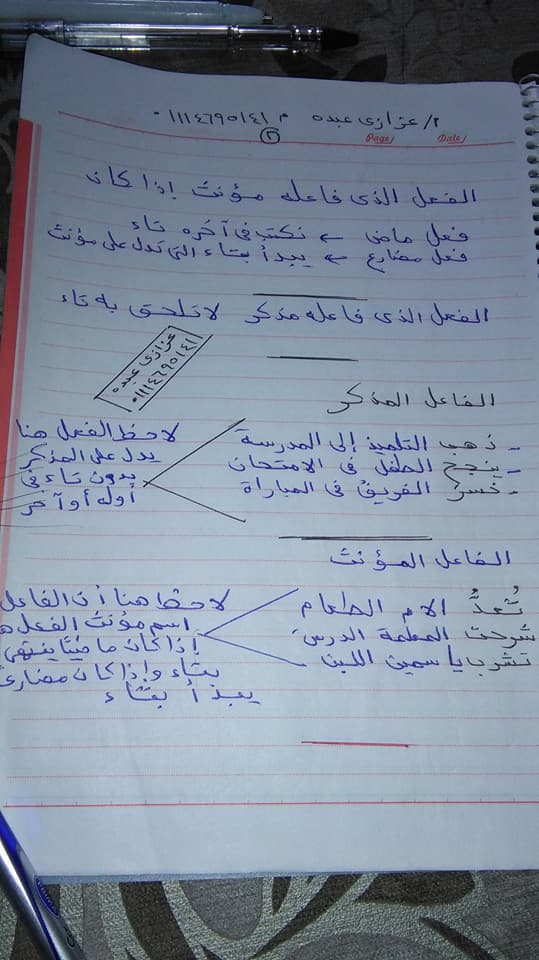 ٢/ عزازى عبده م ٠١١١٤٦٩٥١٤١
٢
Page/ Date/
الفعل الذى فاعله مؤنث إذا كان
فعل ماض ← نكتب فى آخره تاء
فعل مضارع ← يبدأ بتاء التى تدل على مؤنث
الفعل الذى فاعله مذكر لا تلحق به تاء
عزازى عبده
٠١١١٤٦٩٥١٤١
الفاعل المذكر
- ذهب التلميذ إلى المدرسة
- ينجح الطفل فى الامتحان
- خسر الفريق فى المباراة
لاحظ الفعل هنا
يدل على المذكر
بدون تاء فى
أوله أو آخر
الفاعل المؤنث
تُعدُّ الام الطعام
شرحت المعلمة الدرس
تشرب ياسمين اللبن
لاحظ هنا أن الفاعل
اسم مؤنث الفعل ه
إذا كان ماضيًا ينتهى
بتاء وإذا كان مضارع
يبدأ بتاء